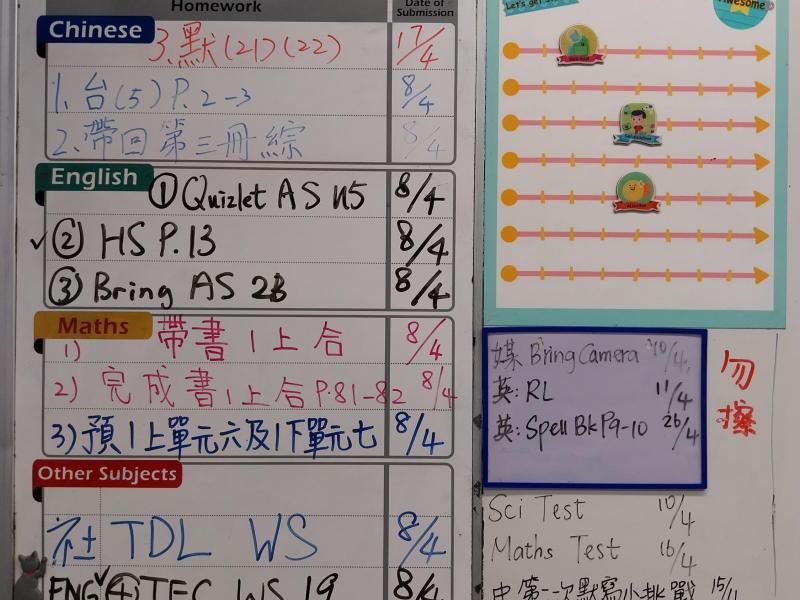 Homework
Date of Submission
Chinese
3.默(21)(22) 17/4
1.台(5) P.2-3 8/4
2.帶回第三冊綜 8/4
English
① Quizlet AS U5 8/4
✓② HS P.13 8/4
③ Bring AS 2B 8/4
Maths
1) 帶書1上合 8/4
2) 完成書1上合P.81-82 8/4
3)預1上單元六及1下單元七 8/4
Other Subjects
社 TDL WS 8/4
ENG ✓④ TEC WS 19 8/4
Let's get
Awesome
媒 Bring Camera 10/4
英: RL 11/4
英: Spell Bk P9-10 26/4
勿擦
Sci Test 10/4
Maths Test 16/4
中 第一次默寫小挑戰 15/4